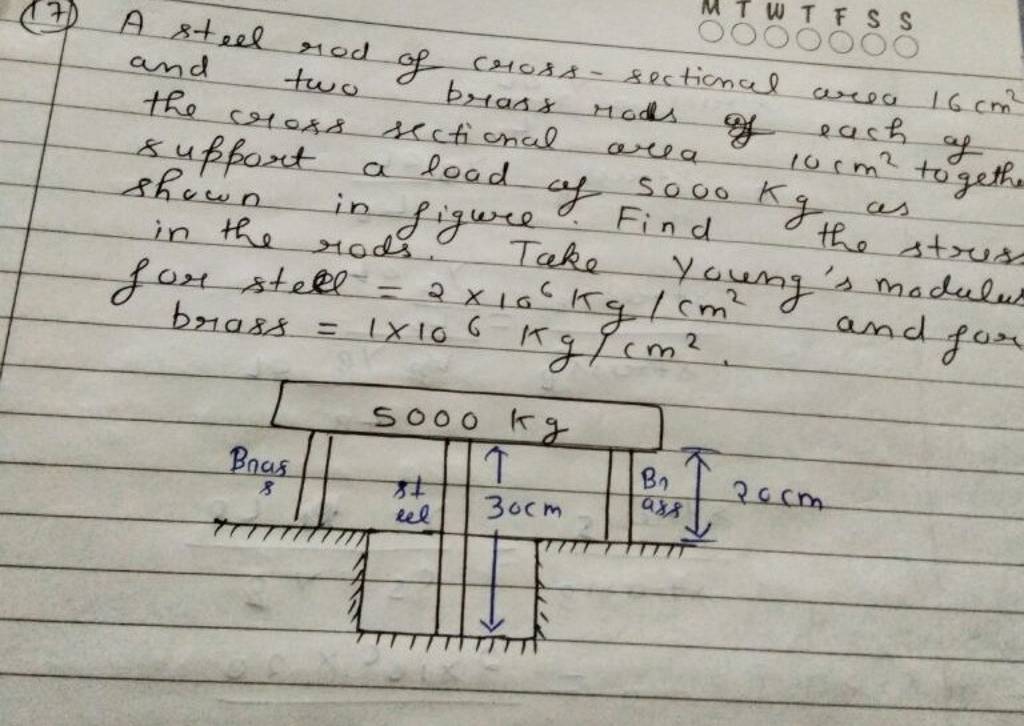 M T W T F S S
(17) A steel rod of cross-sectional area 16 cm²
and two brass rods of each of
the cross sectional area 10 cm² togethe
support a load of 5000 Kg as
shown in figure. Find the stress
in the rods. Take Young's modulus
for steel = 2 × 10⁶ Kg / cm² and for
brass = 1 × 10⁶ Kg / cm².
5000 Kg
Bras
s
st
eel
30cm
Br
ass
20cm